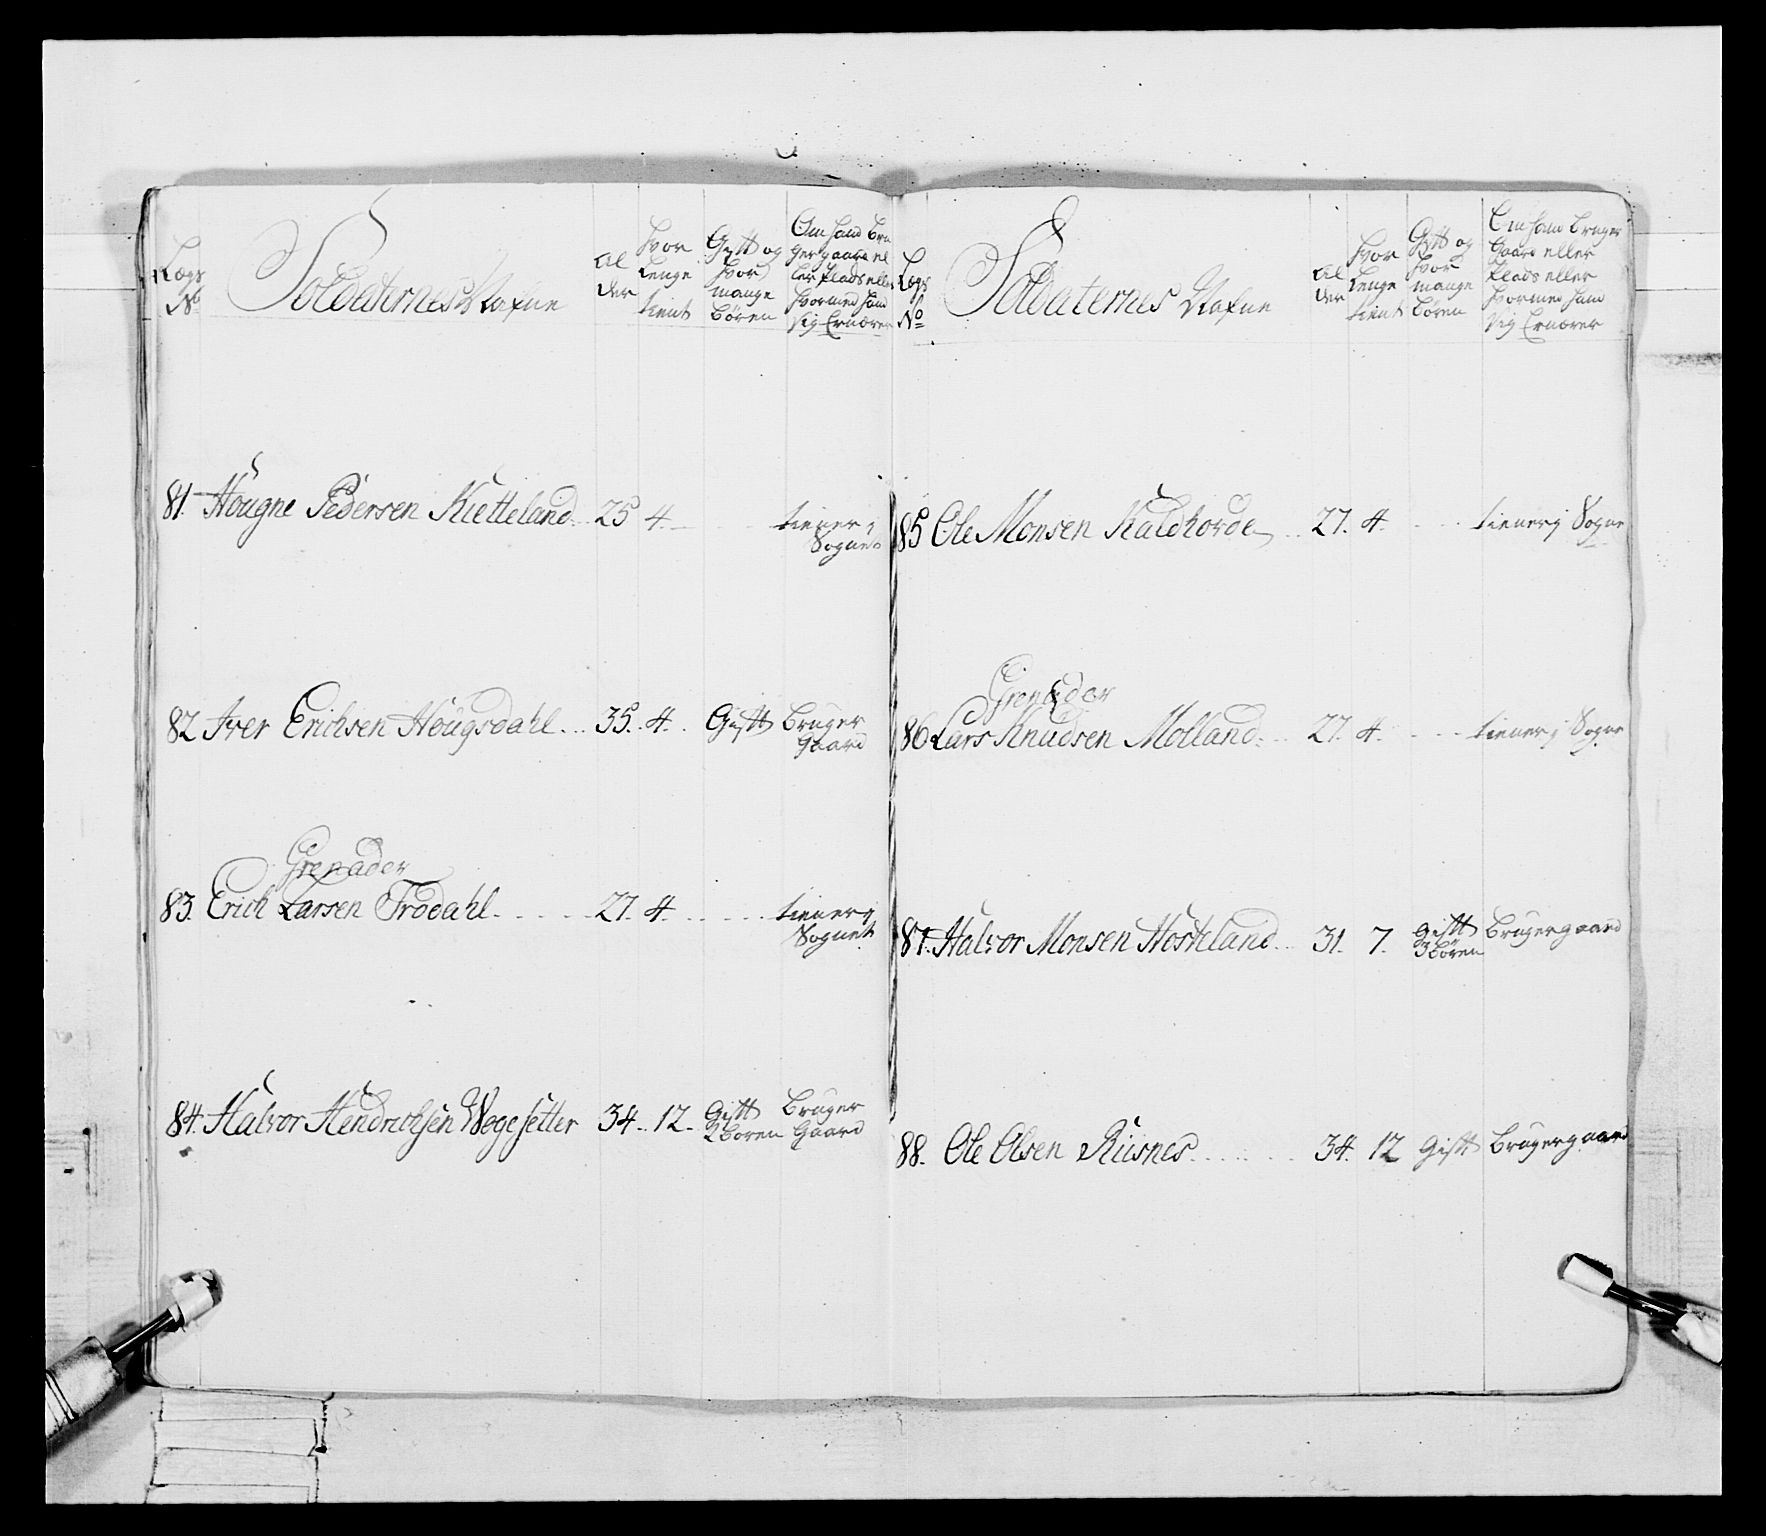 Lægs No
Soldaternes Nafne
Al der
hvor lenge tient
Gift og hvor mange börn
Om hand bru
ger gaard el
ler Plads eller
hvormed hand
sig Ernærer
81. Hougne Pedersen Kietteland 25 4. tiener j
Sognet
82 Iver Erichsen Hougsdahl 35. 4. Gift Bruger
Gaard
Grenader
83. Erich Larsen Trodahl 27. 4. tiener j
Sognet
84. Halvor Hendrichsen Wegesetter 34. 12. Gift Bruger
2 boren Gaard
Lægs No
Soldaternes Nafne
Al der
hvor lenge tient
Gift og hvor mange bören
Om ham bruger
Gaard eller
Plads eller
hvormed hand
sig Ernærer
85 Ole Monsen Kaldhorde 27. 4. tiener j Sogne
Grenader
86 Lars Knudsen Molland 27. 4. tiener j Sogne
87. Halvor Monsen Horteland 31. 7. gift Bruger gaard
3 bören
88. Ole Olsen Riisnes 34. 12 Gift Bruger gaard